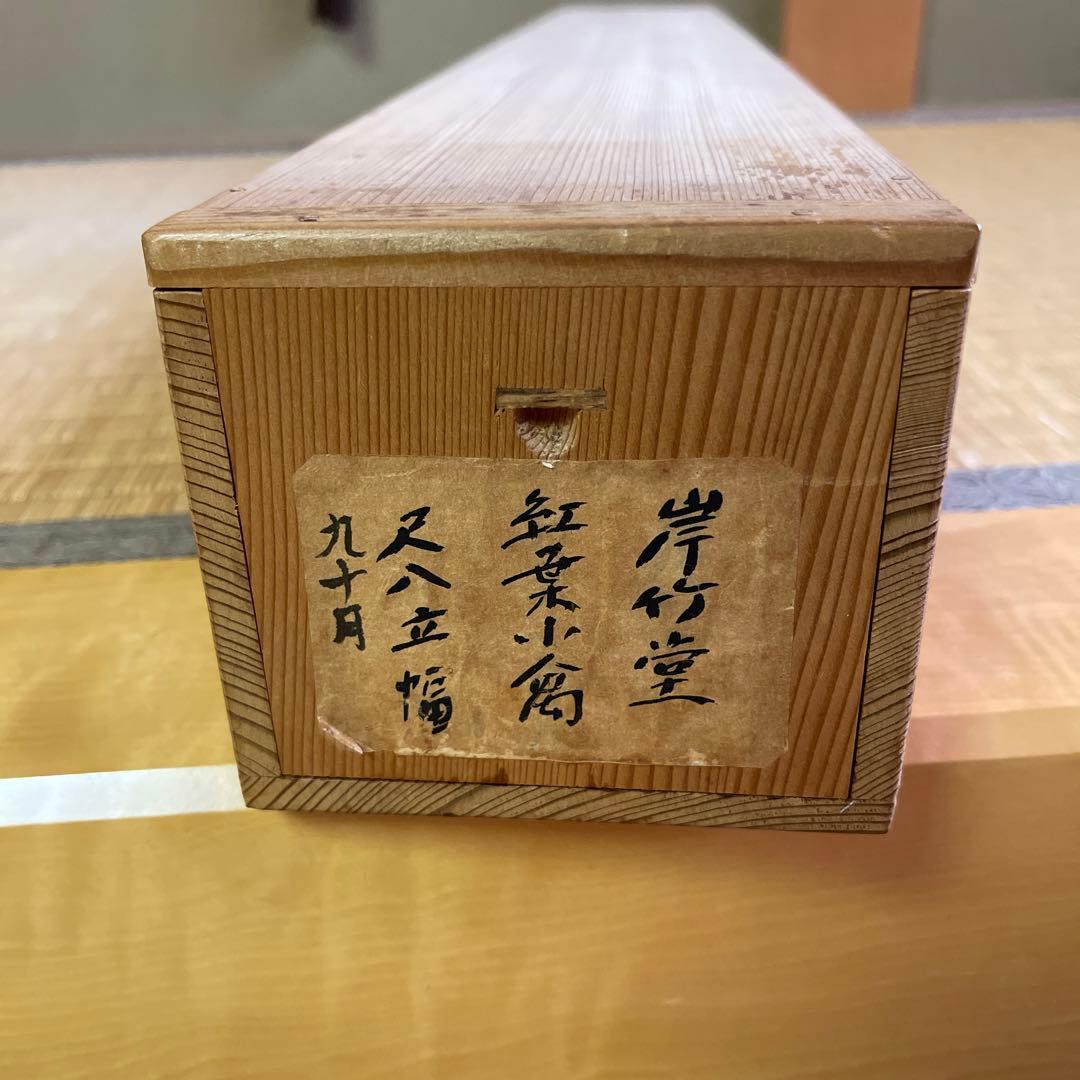 岸竹堂
紅葉小禽
尺八立幅
九十月